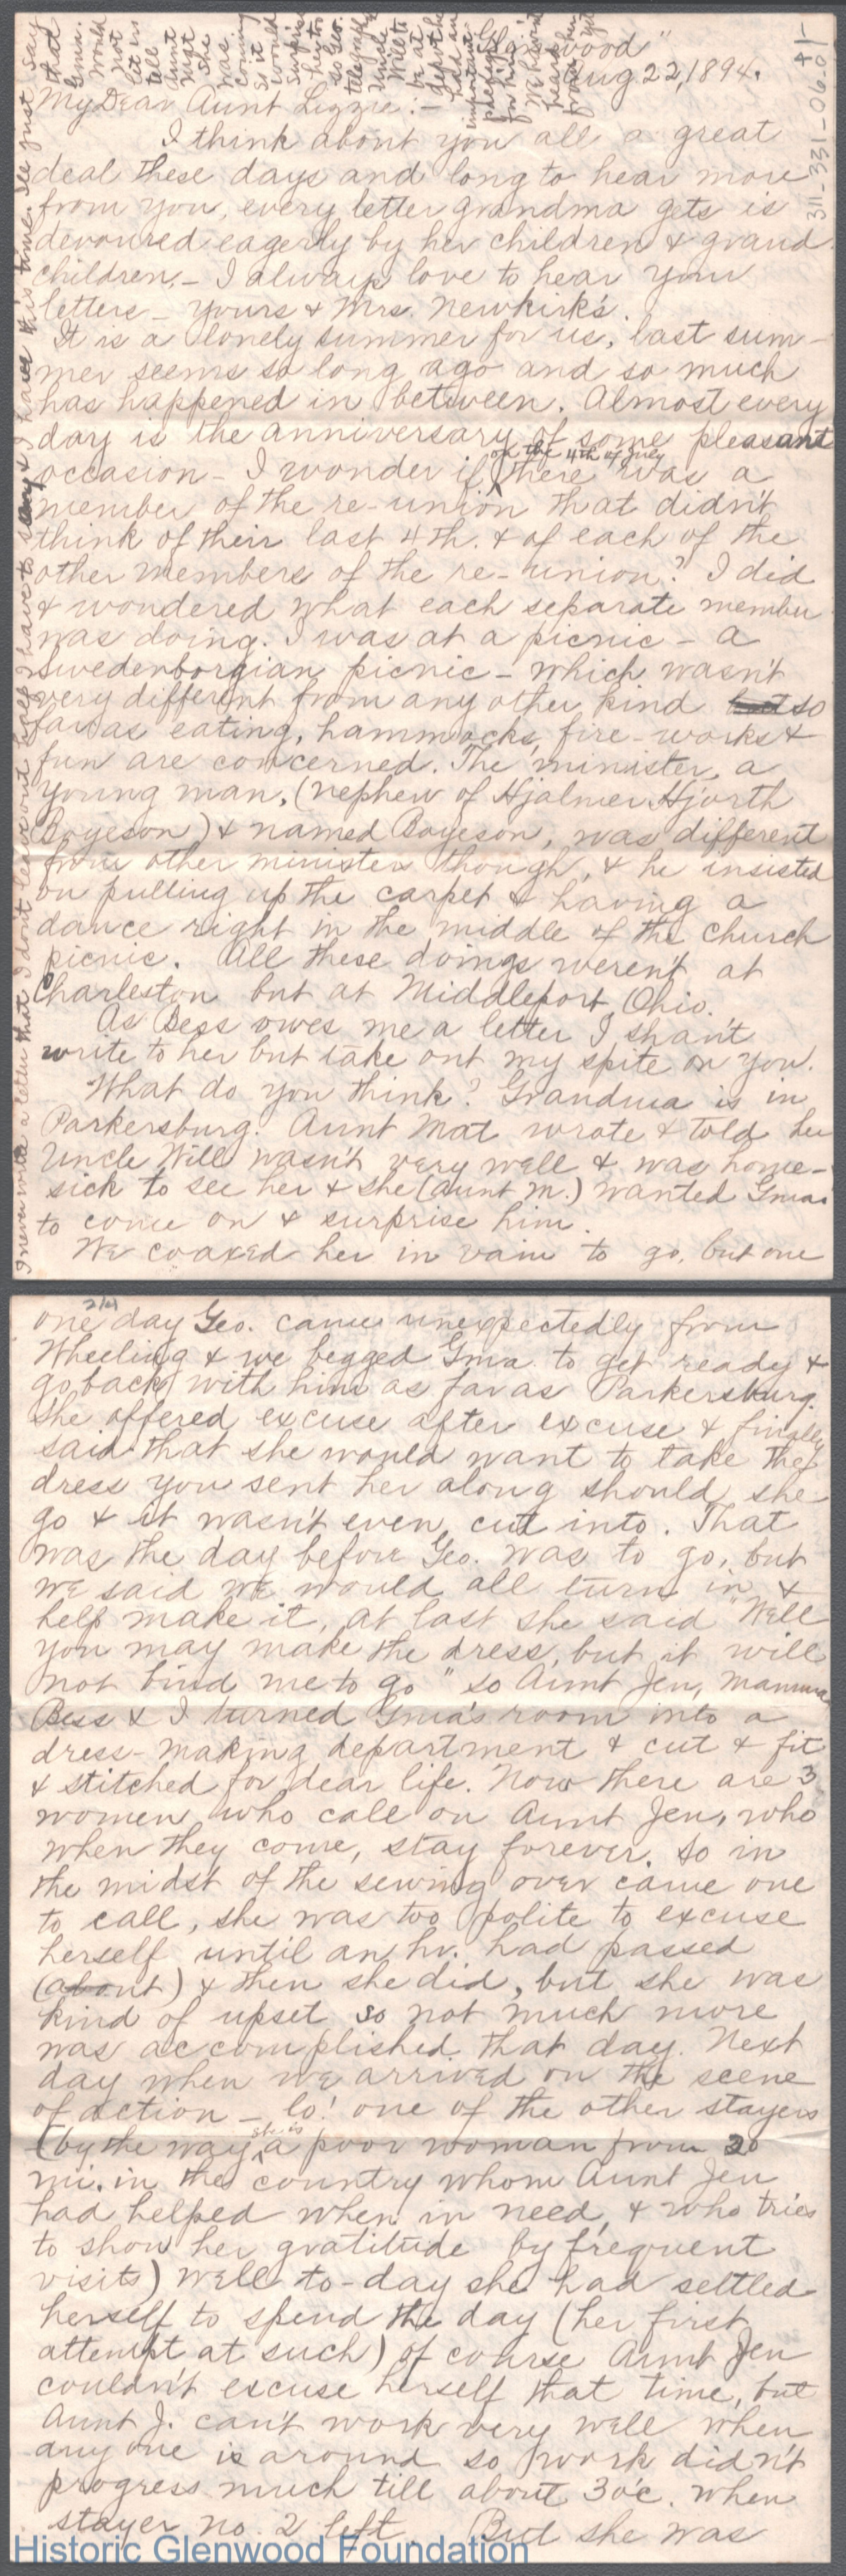 "Glenwood"
Aug 22, 1894.
My Dear Aunt Lizzie:-
I think about you all a great
deal these days and long to hear more
from you, every letter grandma gets is
devoured eagerly by her children & grand
children,- I always love to hear your
letters - yours & Mrs. Newkirk's.
It is a lonely summer for us, last sum-
mer seems so long ago and so much
has happened in between. Almost every
day is the anniversary of some pleasant
occasion - I wonder if on the 4th of July there was a
member of the re-union that didn't
think of their last 4th. & of each of the
other members of the re-union? I did
& wondered what each separate member
was doing. I was at a picnic - a
Swedenborgian picnic - which wasn't
very different from any other kind but so
far as eating, hammocks, fire-works &
fun are concerned. The minister, a
young man, (nephew of Hjalmer Hjorth
Boyeson) & named Boyeson, was different
from other ministers though, & he insisted
on pulling up the carpet & having a
dance right in the middle of the church
picnic. All these doings weren't at
Charleston but at Middleport, Ohio.
As Bess owes me a letter I shan't
write to her but take out my spite on you.
What do you think? Grandma is in
Parkersburg. Aunt Mat wrote & told her
Uncle Will wasn't very well & was home-
sick to see her & she (aunt M.) wanted Gma
to come on & surprise him.
We coaxed her in vain to go, but one
I never write a letter that I don't leave out half I have to say & I have this time. I'll just say
that
Gma.
would
not
let us
tell
Aunt
Mat
she
was
coming
so it
would
surprise
her too
so Geo.
telegraphed
Uncle
Will to
be at
depot he
had an
important
package
for him.
We haven't
heard
from her
yet
311-331-06.01
one day Geo. came unexpectedly from
Wheeling & we begged Gma. to get ready &
go back with him as far as Parkersburg.
She offered excuse after excuse & finally
said that she would want to take the
dress you sent her along should she
go & it wasn't even cut into. That
was the day before Geo. was to go, but
we said we would all turn in &
help make it, at last she said "Well
you may make the dress, but it will
not bind me to go" so Aunt Jen, Mamma
Bess & I turned Gma's room into a
dress-making department & cut & fit
& stitched for dear life. Now there are 3
women who call on Aunt Jen, who
when they come, stay forever. So in
the midst of the sewing over came one
to call, she was too polite to excuse
herself until an hr. had passed
(about) & then she did, but she was
kind of upset so not much more
was accomplished that day. Next
day when we arrived on the scene
of action - lo! one of the other stayers
(by the way she is a poor woman from 20
mi. in the country whom Aunt Jen
had helped when in need, & who tries
to show her gratitude by frequent
visits) well to-day she had settled
herself to spend the day (her first
attempt at such) of course Aunt Jen
couldn't excuse herself that time, but
Aunt J. can't work very well when
any one is around so work didn't
progress much till about 3 o'c. when
stayer no. 2 left. But she was
Historic Glenwood Foundation